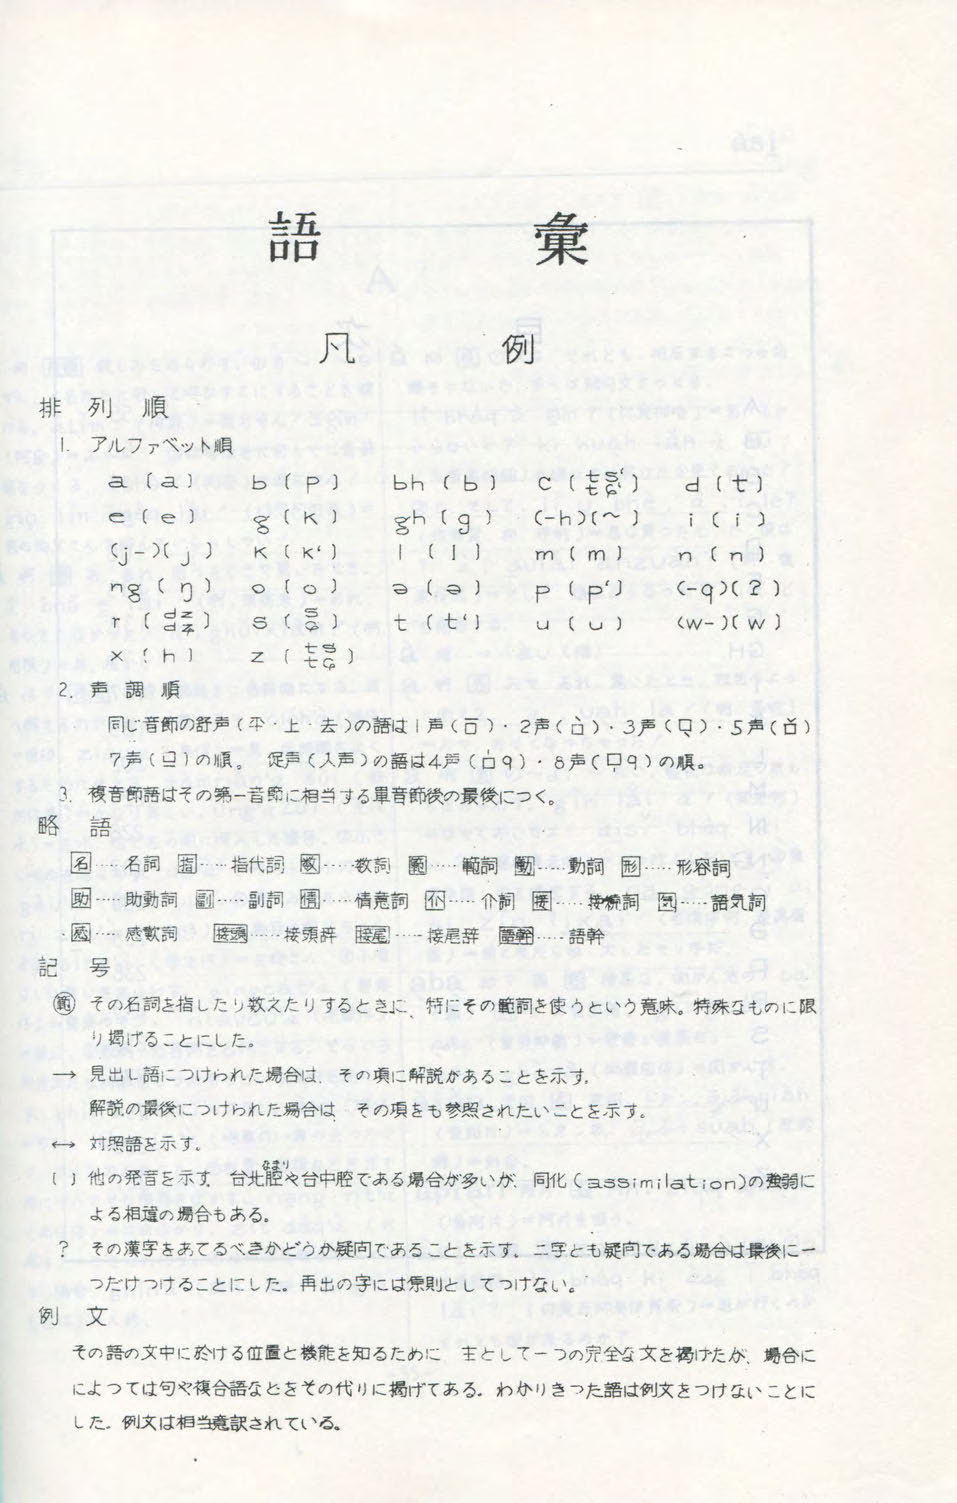 語彙
凡例
排列順
1. アルファベット順
a (a) b (p) bh (b) c (tsʻ tɕʻ) d (t)
e (e) g (k) gh (g) (-h)(~) i (i)
(j-)(j) k (kʻ) l (l) m (m) n (n)
ng (ŋ) o (o) ə (ə) p (pʻ) (-q)(ʔ)
r (dz dʑ) s (s ɕ) t (tʻ) u (u) (w-)(w)
x (h) z (ts tɕ)
2. 声調順
同じ音節の舒声(平・上・去)の語は1声(口̄)・2声(口̀)・3声(口̖)・5声(口̌)
7声(口̲)の順。 促声(入声)の語は4声(口̍q)・8声(口q)の順。
3. 複音節語はその第一音節に相当する単音節後の最後につく。
略語
名……名詞 指……指代詞 数……数詞 範……範詞 動……動詞 形……形容詞
助……助動詞 副……副詞 情……情意詞 介……介詞 接……接続詞 気……語気詞
感……感歎詞 接頭……接頭辞 接尾……接尾辞 語幹……語幹
記号
範 その名詞を指したり数えたりするときに、特にその範詞を使うという意味。特殊なものに限
り掲げることにした。
→ 見出し語につけられた場合は、その項に解説があることを示す。
解説の最後につけられた場合は その項をも参照されたいことを示す。
↔ 対照語を示す。
( ) 他の発音を示す 台北腔や台中腔である場合が多いが、同化(assimilation)の強弱に
なまり
よる相違の場合もある。
? その漢字をあてるべきかどうか疑问であることを示す。二字とも疑问である場合は最後に一
つだけつけることにした。再出の字には原則としてつけない。
例文
その語の文中に於ける位置と機能を知るために 主として一つの完全な文を掲げたが、場合に
によつては句や複合語などをその代りに掲げてある。わかりきつた語は例文をつけないことに
した。例文は相当意訳されている。